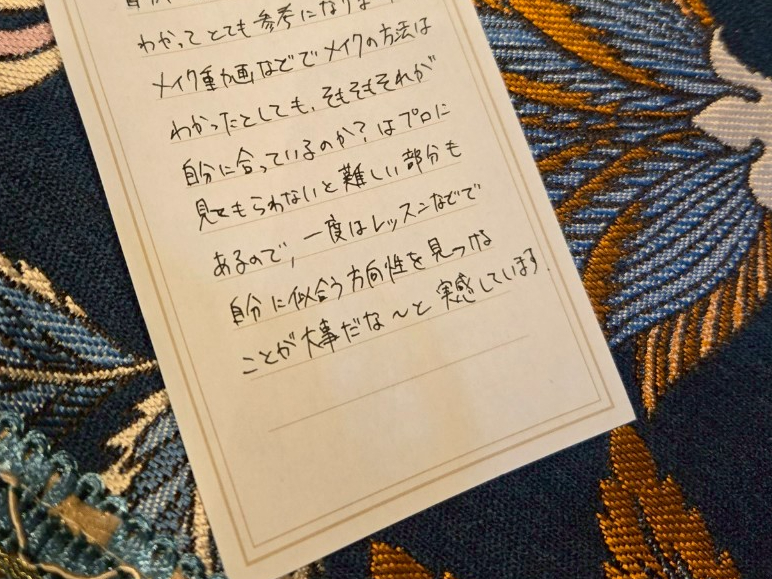 わかってとても参考になりま
メイク動画などでメイクの方法は
わかったとしても、そもそもそれが
自分に合っているのか?はプロに
見てもらわないと難しい部分も
あるので、一度はレッスンなどで
自分に似合う方向性を見つける
ことが大事だな〜と実感しています.